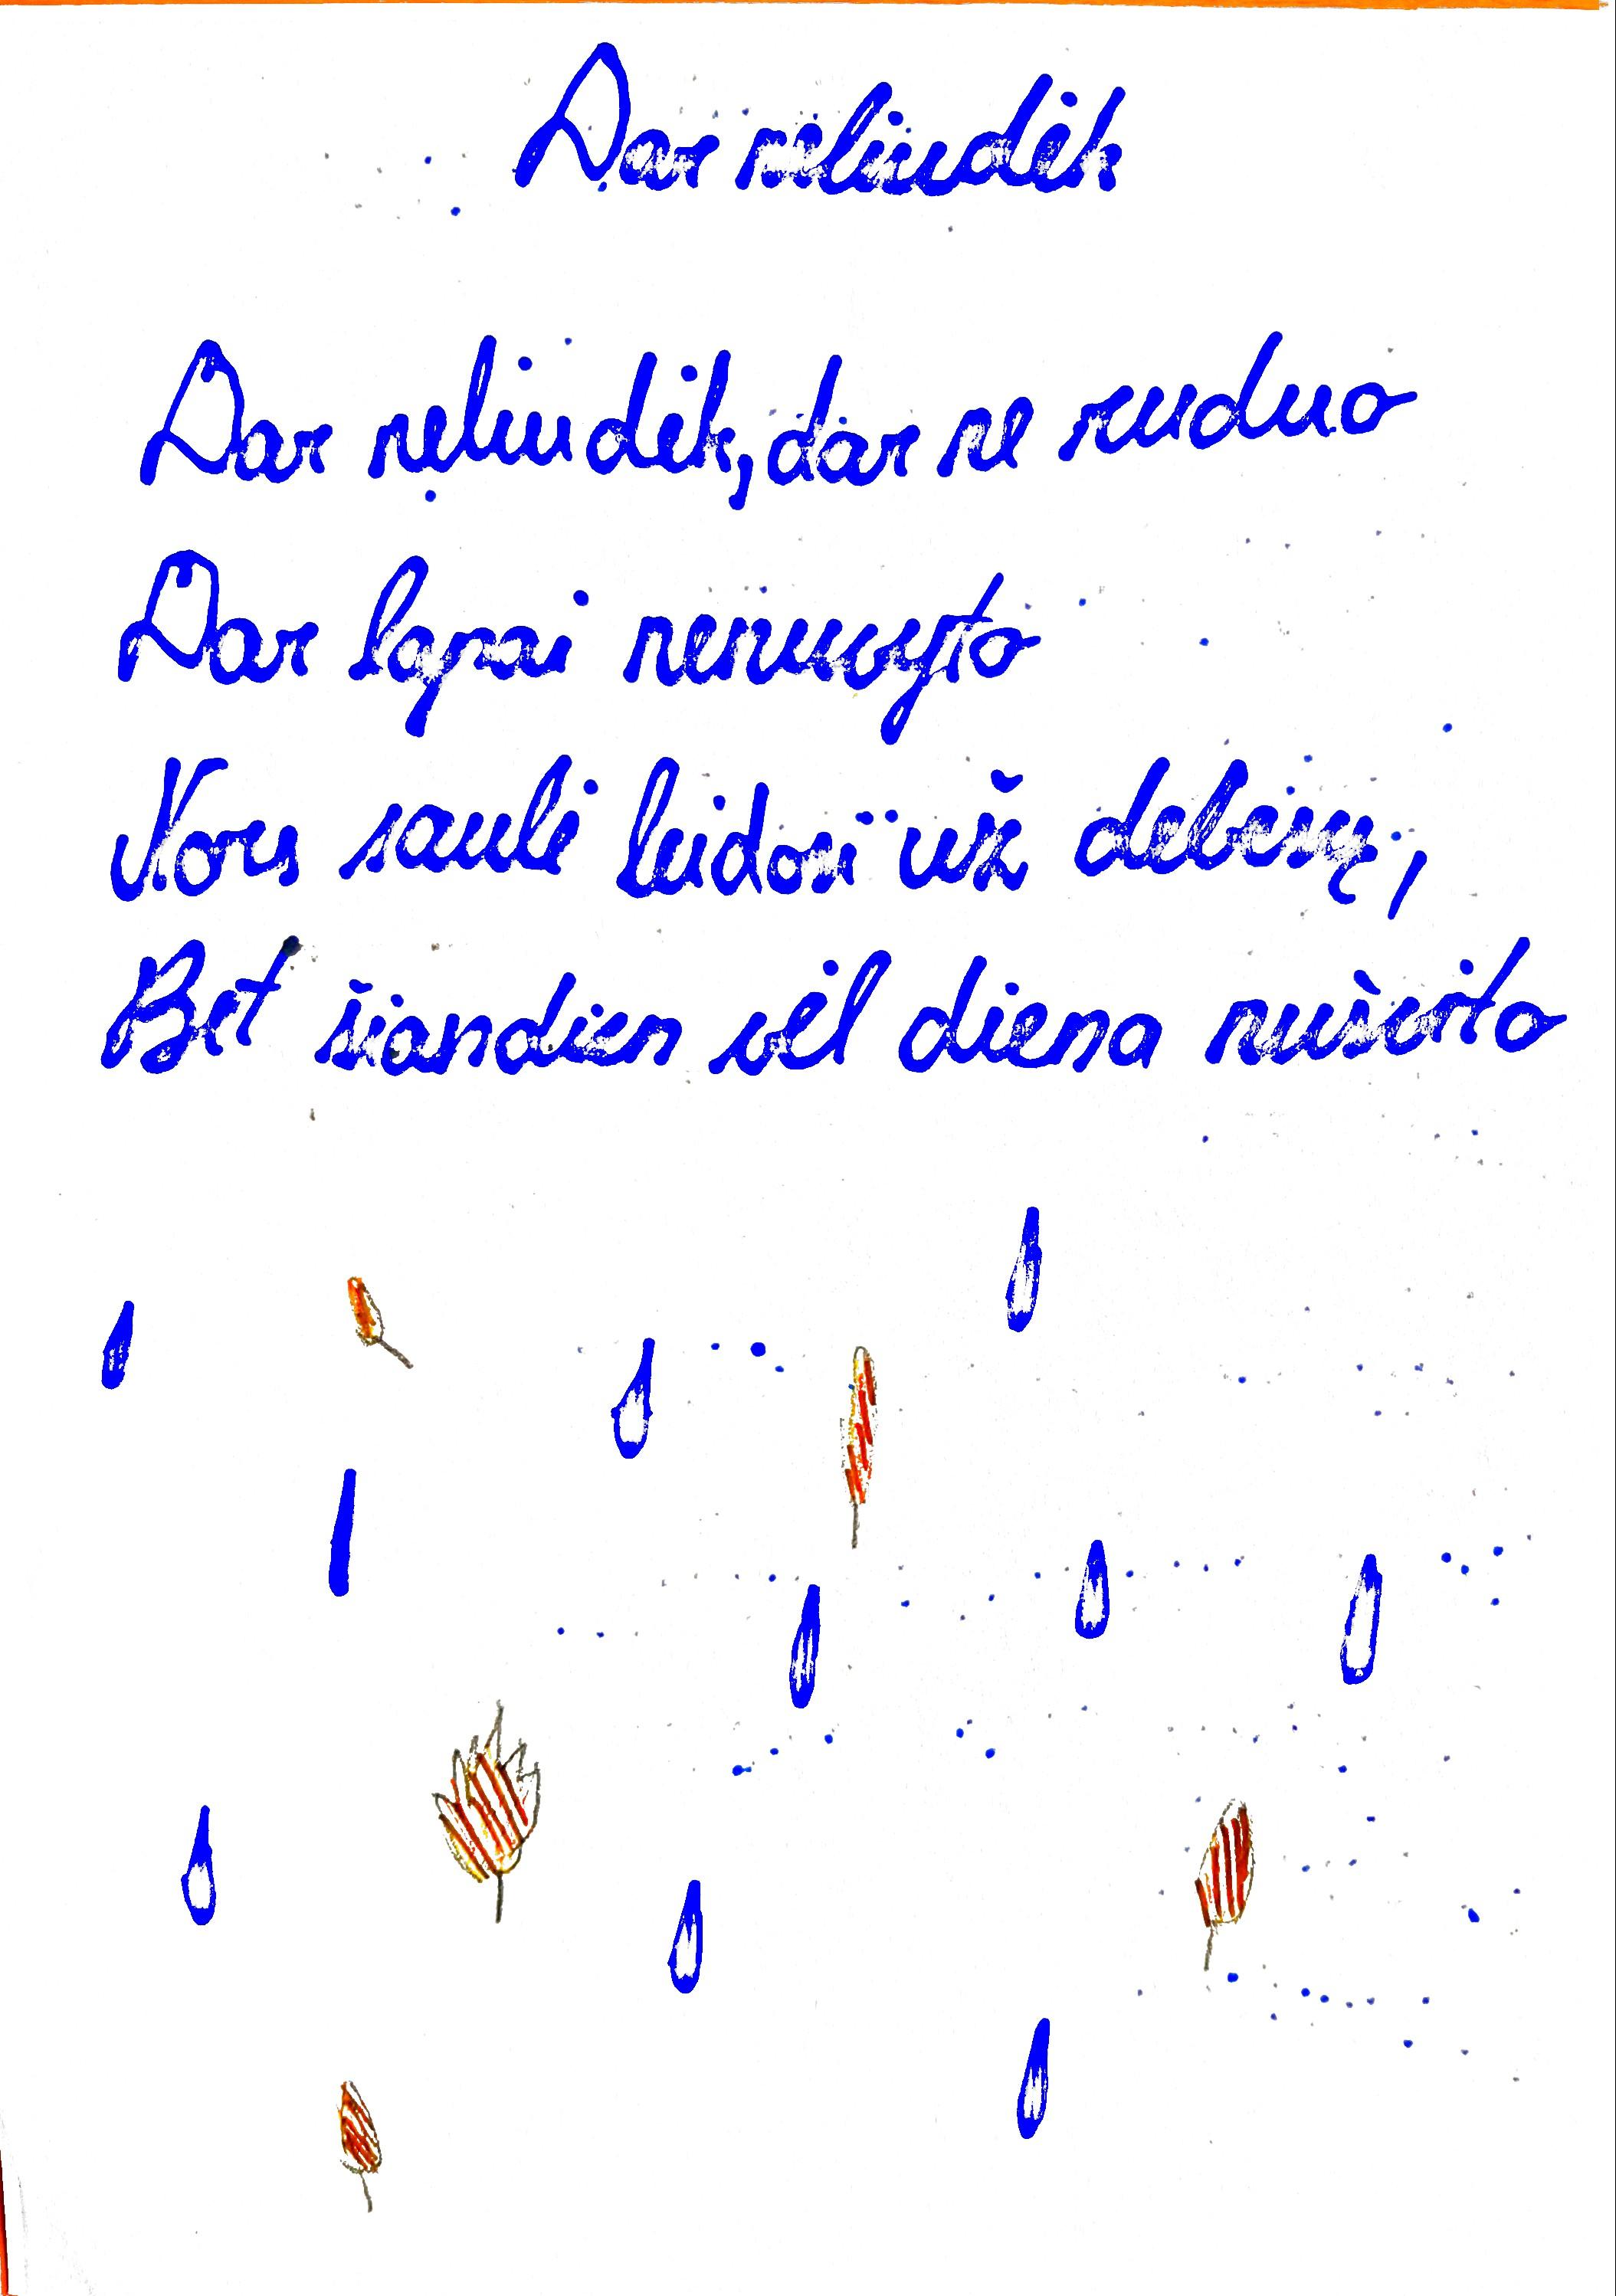 Dar neliūdėk
Dar neliūdėk, dar ne ruduo
Dar lapai nenuvyto
Nors saulė leidosi už debesų,
Bet šiandien vėl diena nušvito